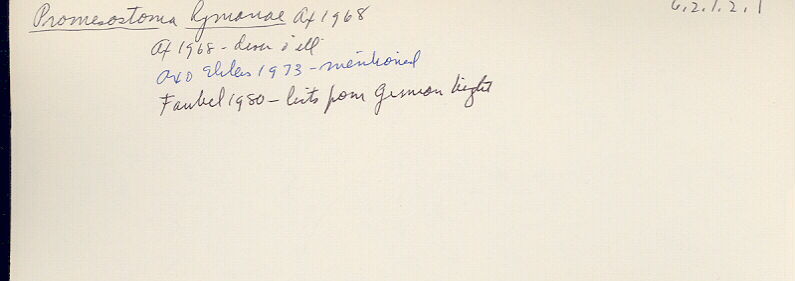 Promesostoma hymanae Ax 1968
6.2.1.2.1
Ax 1968 - descr & ill
Ax & Ehlers 1973 - mentioned
Faubel 1980 - lists from German bight